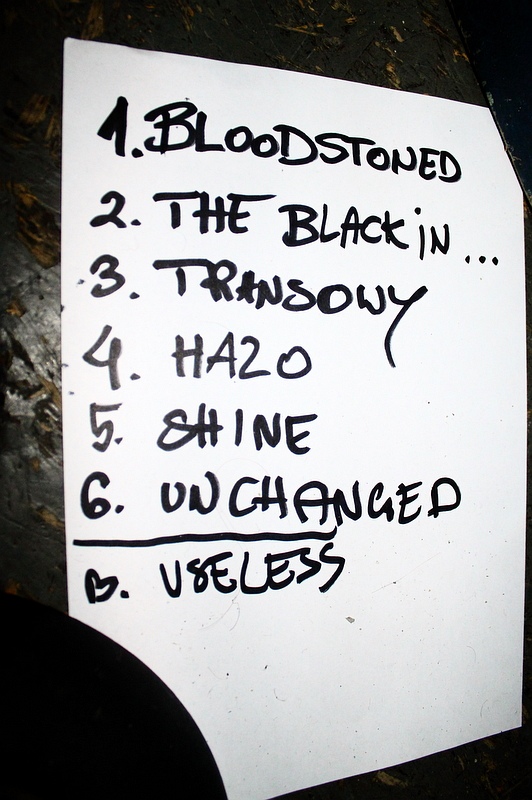 1. BLOODSTONED
2. THE BLACK iN ...
3. TRANSOWY
4. HAZO
5. SHINE
6. UNCHANGED
B. USELESS